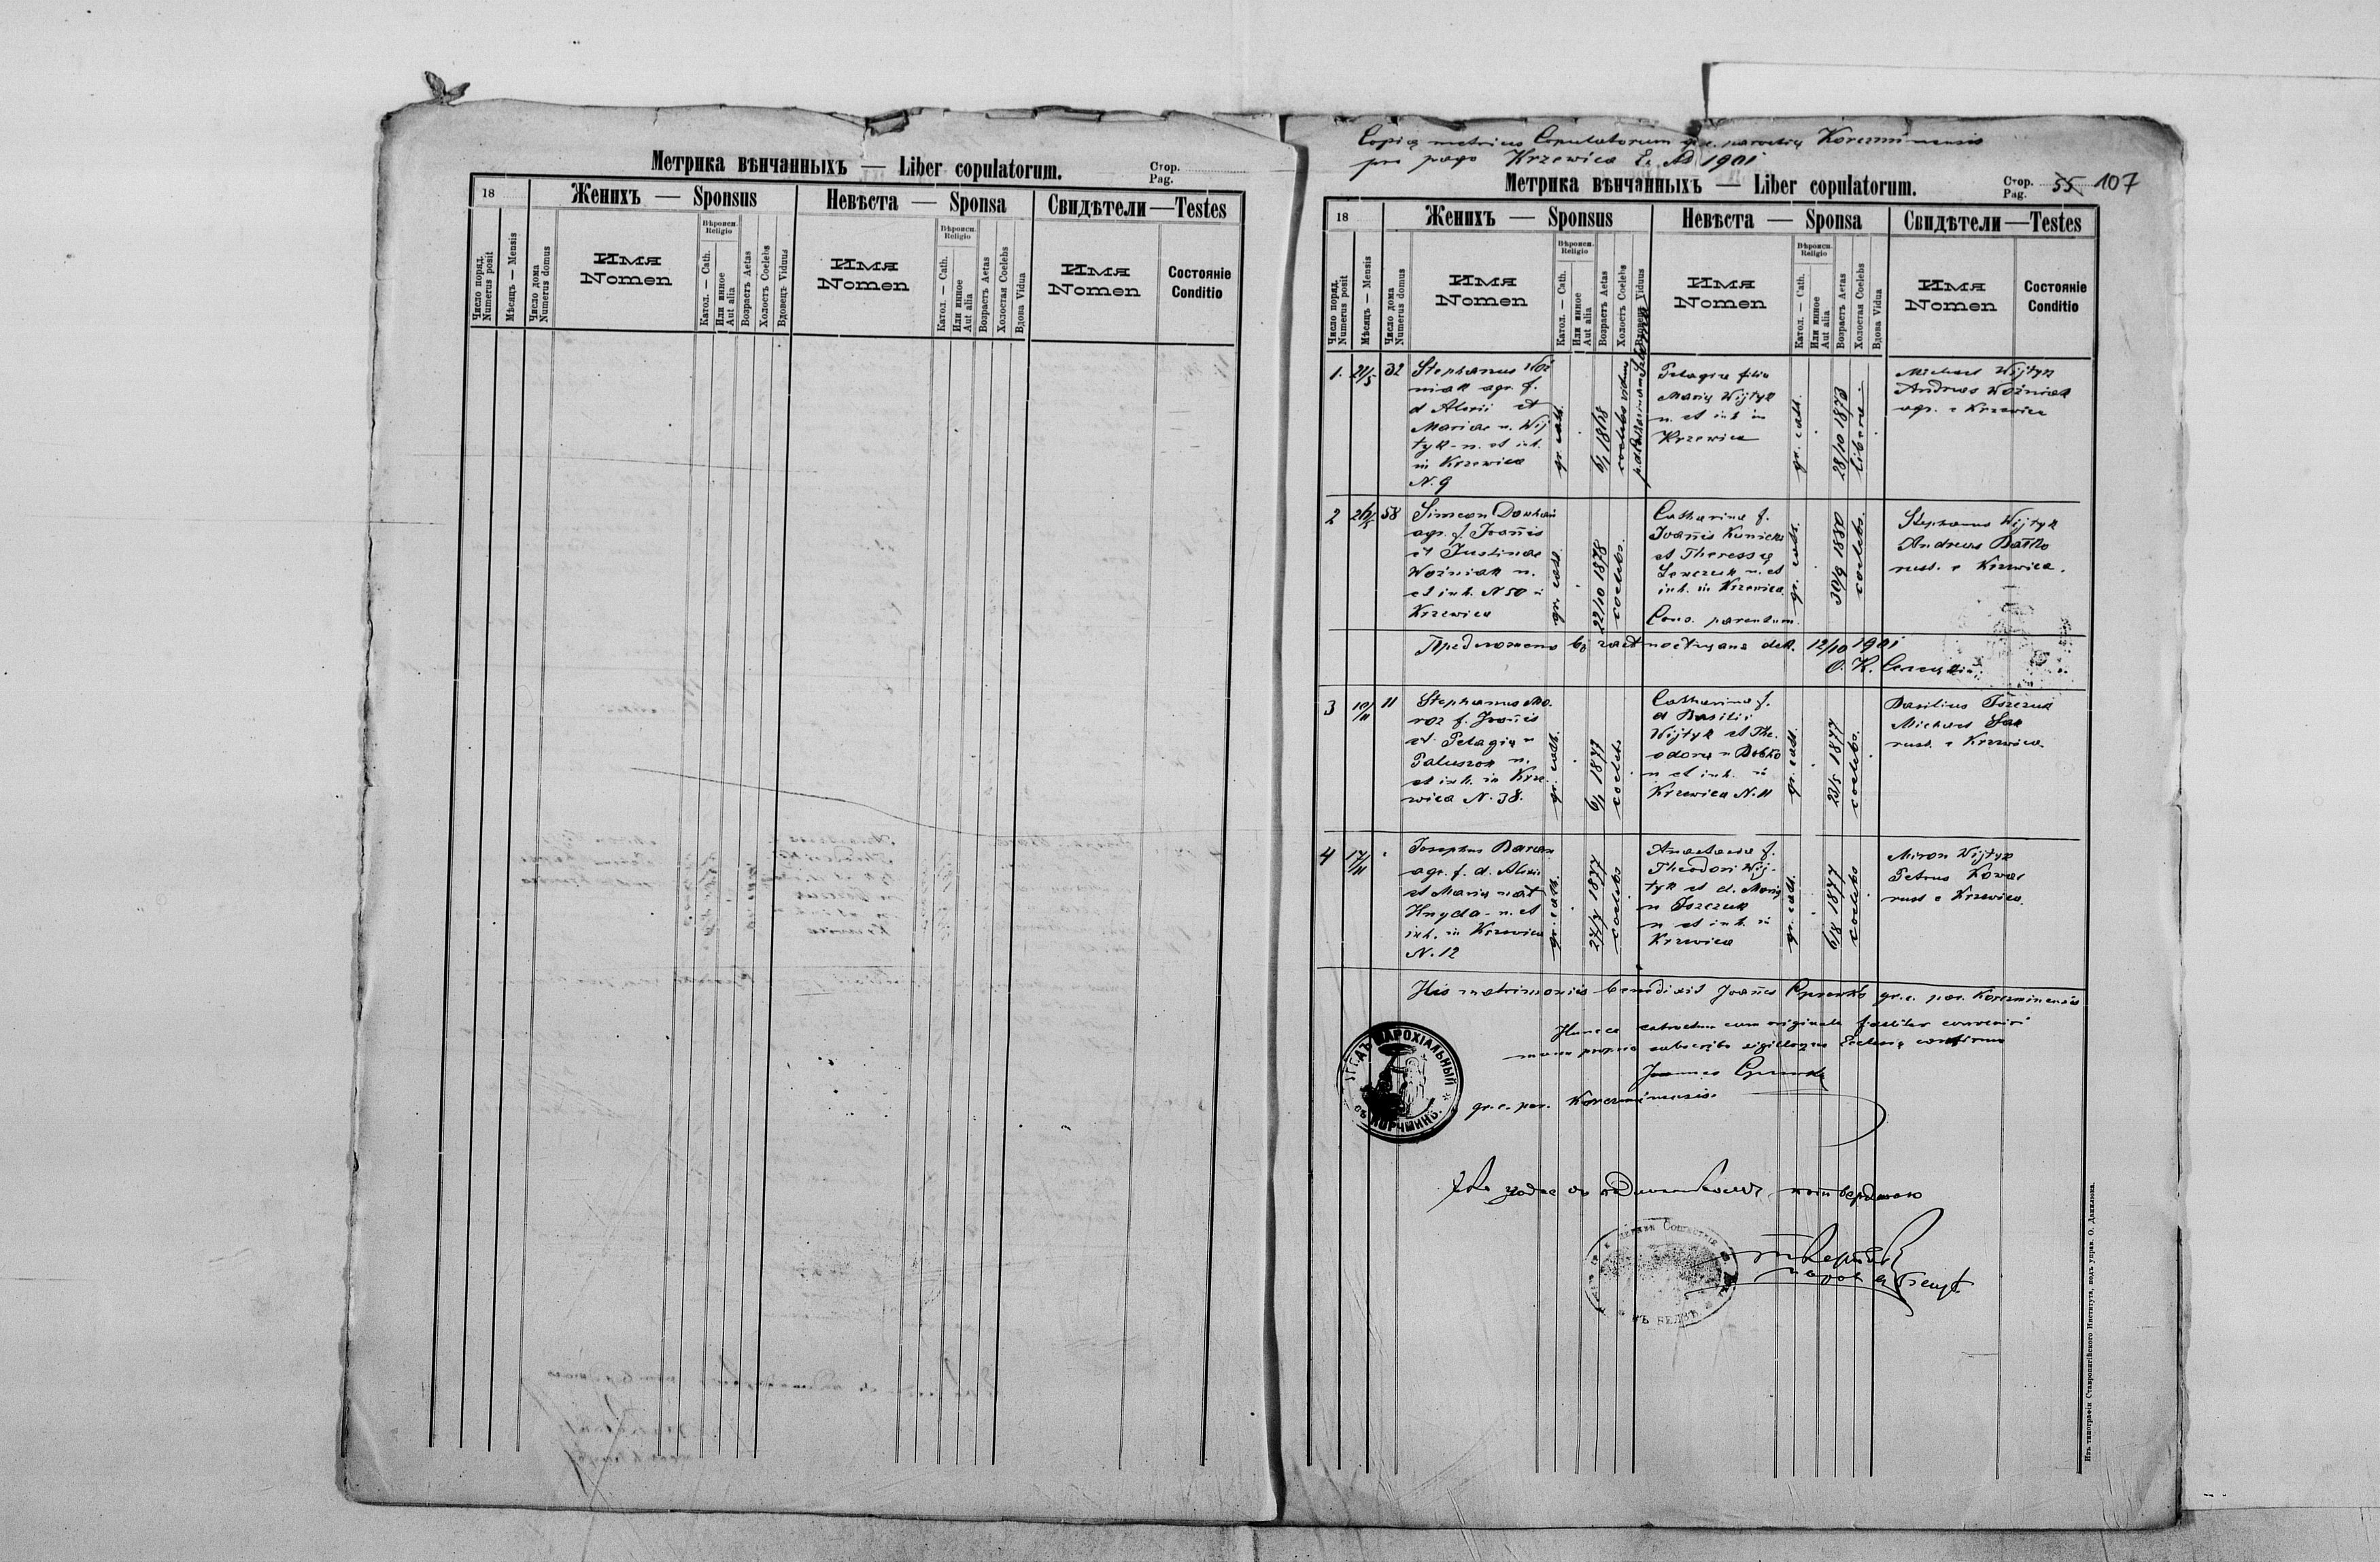 Метрика вѣнчанныхъ — Liber copulatorum.
Стор.
Pag.
18
Женихъ — Sponsus
Невѣста — Sponsa
Свидѣтели — Testes
Число поряд.
Numerus posit
Мѣсяцъ — Mensis
Число дома
Numerus domus
Имя
Nomen
Вѣроисп.
Religio
Катол. — Cath.
Или иное
Aut alia
Возрастъ Aetas
Холостъ Coelebs
Вдовецъ Viduus
Имя
Nomen
Вѣроисп.
Religio
Катол. — Cath.
Или иное
Aut alia
Возрастъ Aetas
Холостая Coelebs
Вдова Vidua
Имя
Nomen
Состояніе
Conditio
Copia metrices Copulatorum gr. c. parochię Korczminensis
pro pago Krzewica 1901
Метрика вѣнчанныхъ — Liber copulatorum.
Стор.
Pag.
55 107
18
Женихъ — Sponsus
Невѣста — Sponsa
Свидѣтели — Testes
Число поряд.
Numerus posit
Мѣсяцъ — Mensis
Число дома
Numerus domus
Имя
Nomen
Вѣроисп.
Religio
Катол. — Cath.
Или иное
Aut alia
Возрастъ Aetas
Холостъ Coelebs
Вдовецъ Viduus
Имя
Nomen
Вѣроисп.
Religio
Катол. — Cath.
Или иное
Aut alia
Возрастъ Aetas
Холостая Coelebs
Вдова Vidua
Имя
Nomen
Состояніе
Conditio
1. 21/5 32
Stephanus Woź
niak agr. f.
d Alexii et
Mariae n. Wij
tyk - n. et inh.
in Krzewica
N. 9
gr. cath.
6/1 1868
viduus
Pelagia filia
Marię Wijtyk
n. et inh in
Krzewica
gr. cath.
28/10 1873
libera
Michael Wijtyk
Andreas Woźniak
agr. e Krzewica
2 26/5 58
Simeon Dowhań
agr. f. Joannis
et Justinae
Woźniak n.
et inh. N 50 in
Krzewica
gr. cath.
22/10 1878
coelebs.
Catharina f.
Joannis Kunicki
et Theressę
n. et
inh. in Krzewica
Cons. parentum.
gr. cath.
30/9 1880
coelebs.
Stephanus Wijtyk
Andreas Batko
rust. e Krzewica.
Предложено dek. 12/10 1901
3 10/11 11
Stephanus Mo-
roz f. Joannis
et Pelagię n
Paluszok n.
et inh. in Krze-
wica N. 38.
gr. cath.
6/1 1877
coelebs
Catharina f.
d Basilii
Wijtyk et The-
odorę n Bobko
n et inh. in
Krzewica N. 11
gr. cath.
23/5 1877
coelebs.
Basilius Iszczuk
Michael Sak
rust. e Krzewica.
4 17/11
Josephus Baran
agr. f. d. Alexii
et Marię nat
Hnyda - n. et
inh. in Krzewica
N. 12
gr. cath.
27/7 1877
coelebs
Anastasia f.
Theodori Wij-
tyk et d. Marię
n Iszczuk
n et inh. in
Krzewica
gr. cath.
6/8 1877
coelebs
Miron Wijtyk
Petrus Kowal
rust e Krzewica.
His matrimoniis benedixit Joannes gr. c. par. Korczminensis
Hunce extractum cum originale fideliter convenire
manu propria subscribo sigilloque Ecclesię confirmo
Joannes
gr. c. par. Korczminensis.
УРЯДЪ ПАРОХІАЛЬНЫЙ
ВЪ КОРЧМИНѢ.
потверджаю
ВЪ БЕЛЗѢ
Изъ типографіи Ставропигійского Института, подъ управ. О. Данилюка.